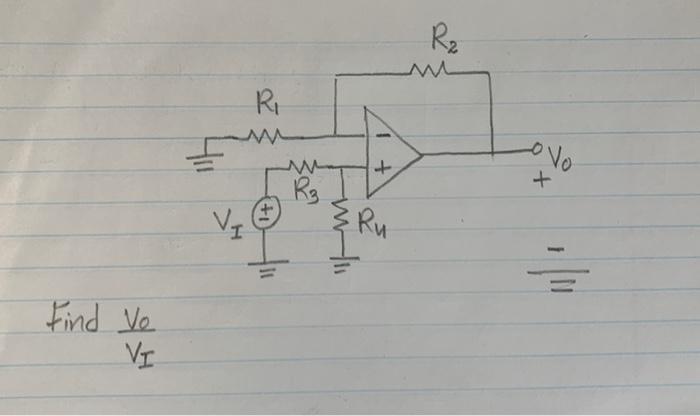 R2
R1
-
+
Vo
+
R3
VI
±
R4
-
Find Vo
VI